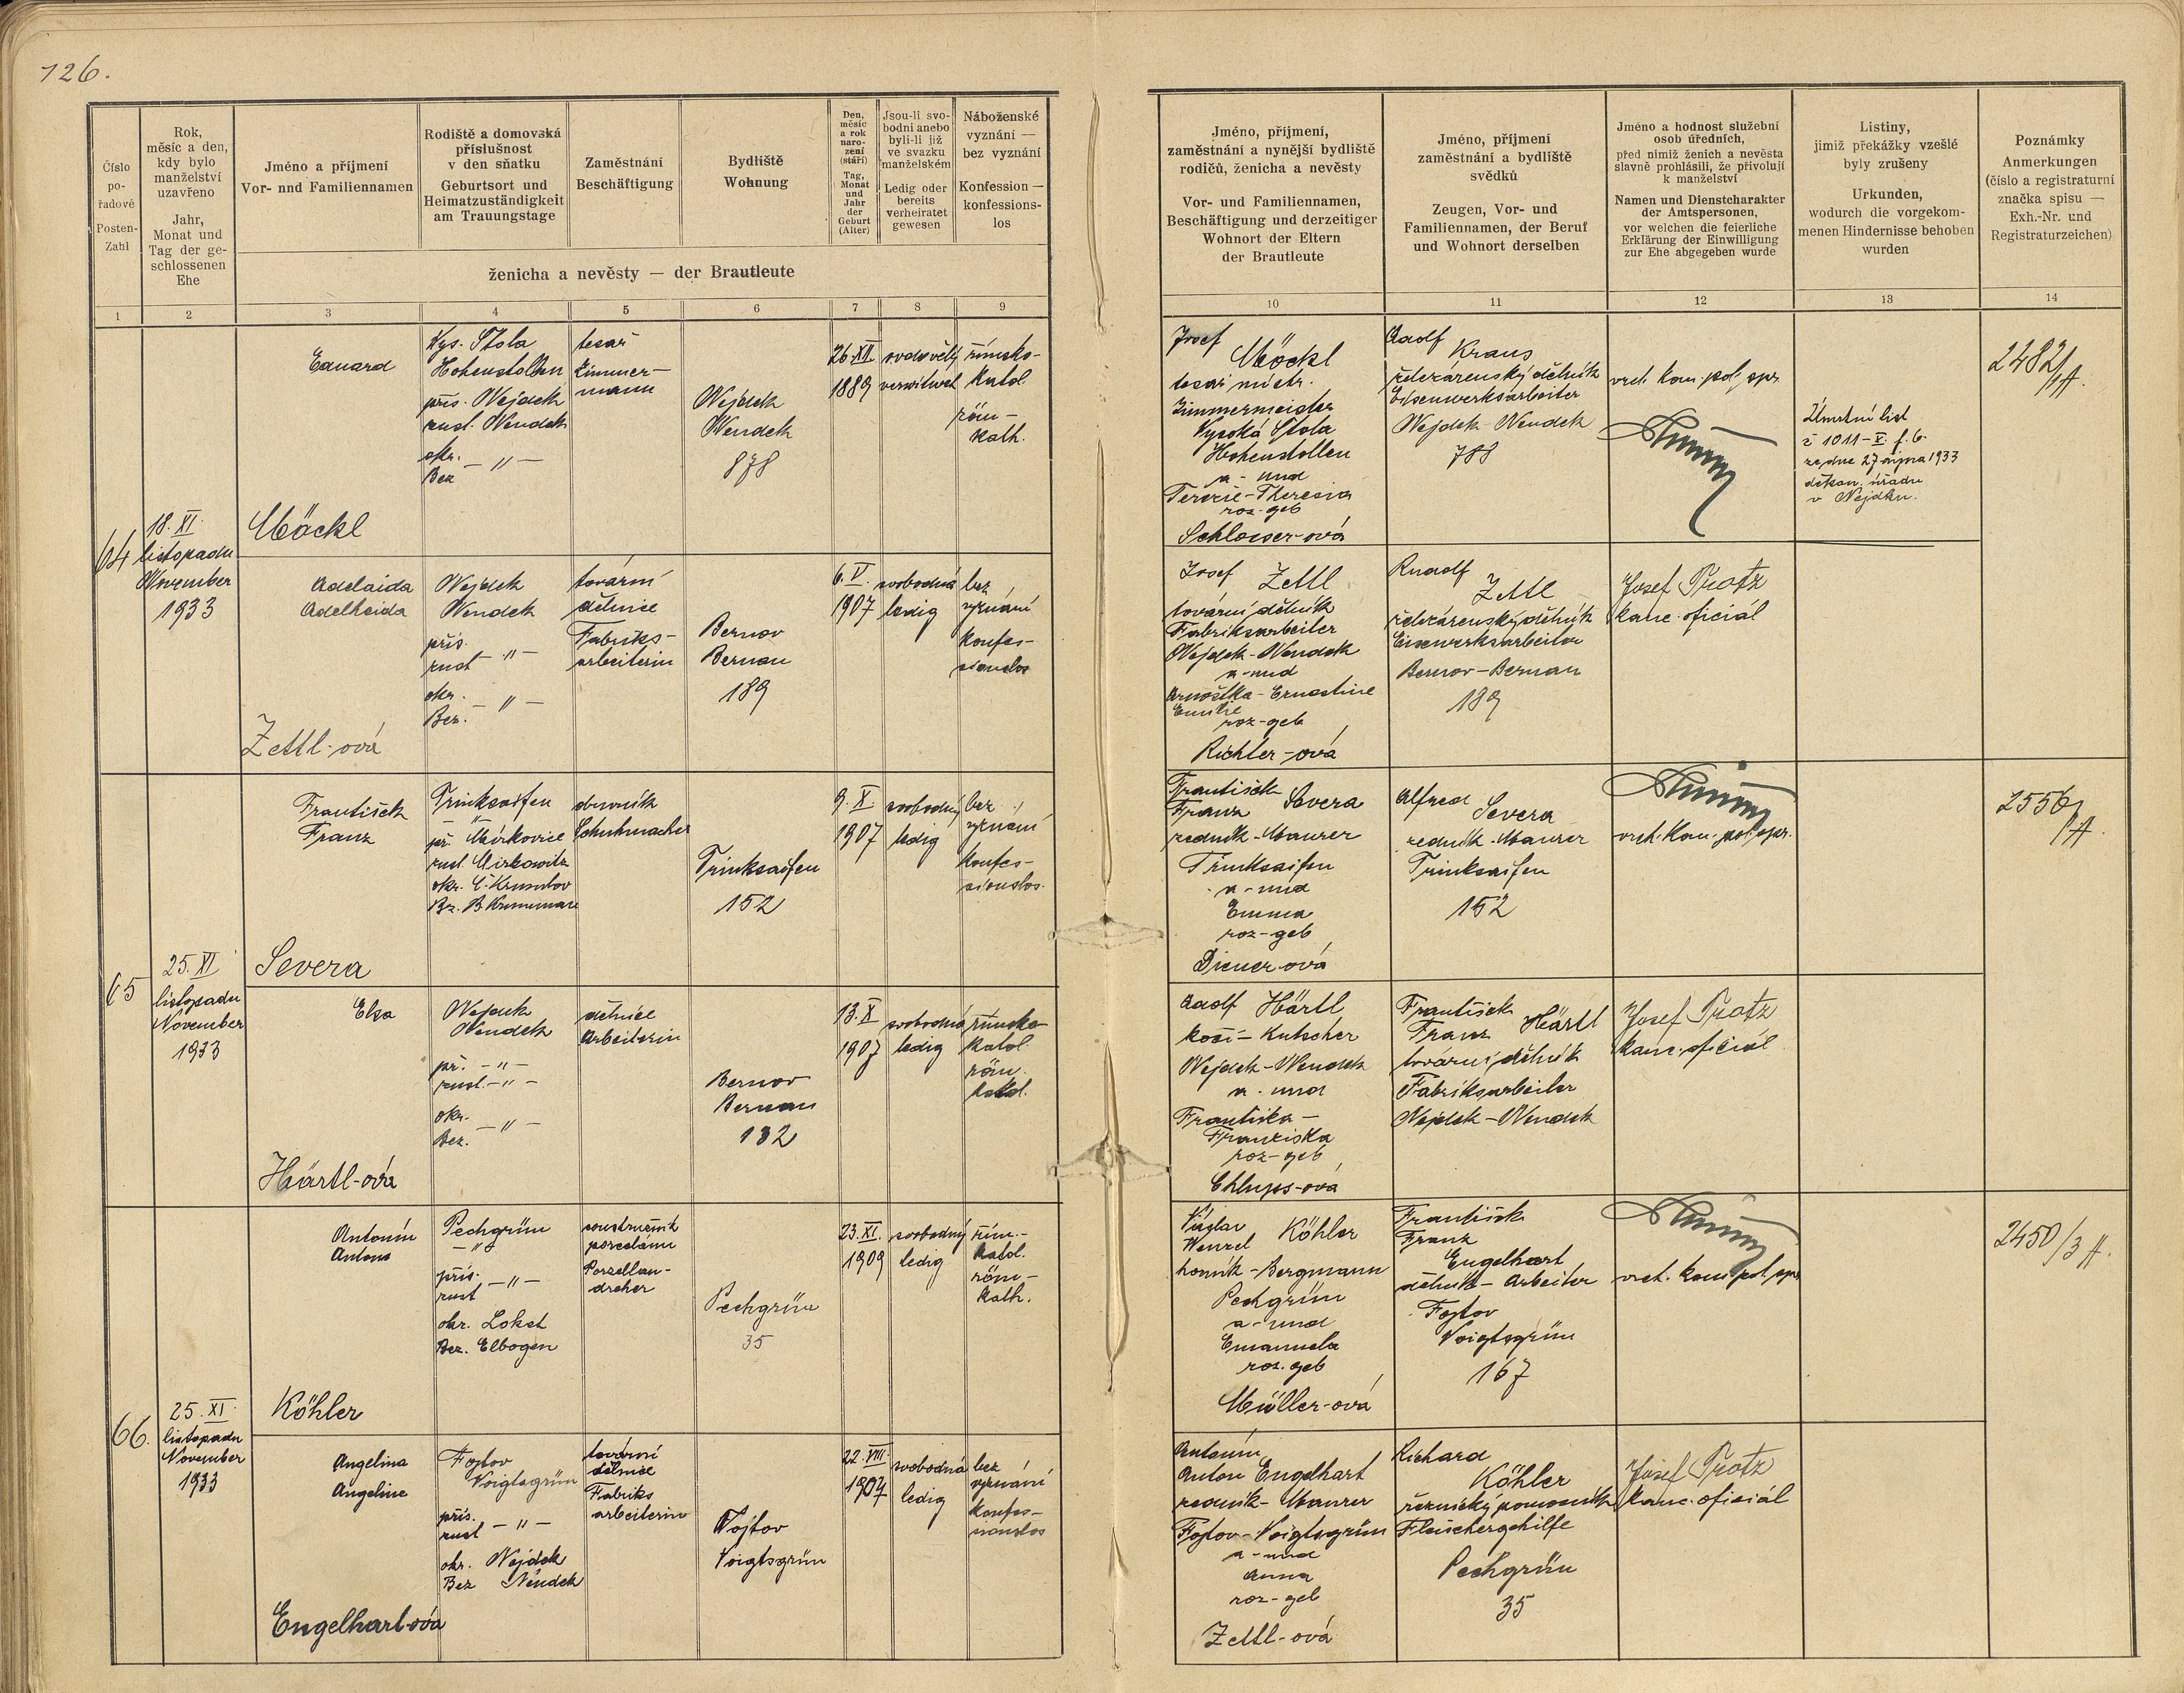 126.
Číslo
po-
řadové
Posten-
Zahl
Rok,
měsíc a den,
kdy bylo
manželství
uzavřeno
Jahr,
Monat und
Tag der ge-
schlossenen
Ehe
Jméno a příjmení
Vor- nnd Familiennamen
Rodiště a domovská
příslušnost
v den sňatku
Geburtsort und
Heimatzuständigkeit
am Trauungstage
Zaměstnání
Beschäftigung
Bydliště
Wohnung
Den,
měsíc
a rok
naro-
zení
(stáří)
Tag,
Monat
und
Jahr
der
Geburt
(Alter)
Jsou-li svo-
bodni anebo
byli-li již
ve svazku
manželském
Ledig oder
bereits
verheiratet
gewesen
Náboženské
vyznání —
bez vyznání
Konfession —
konfessions-
los
ženicha a nevěsty — der Brautleute
Jméno, příjmení,
zaměstnání a nynější bydliště
rodičů, ženicha a nevěsty
Vor- und Familiennamen,
Beschäftigung und derzeitiger
Wohnort der Eltern
der Brautleute
Jméno, příjmení
zaměstnání a bydliště
svědků
Zeugen, Vor- und
Familiennamen, der Beruf
und Wohnort derselben
Jméno a hodnost služební
osob úředních,
před nimiž ženich a nevěsta
slavně prohlásili, že přivolují
k manželství
Namen und Dienstcharakter
der Amtspersonen,
vor welchen die feierliche
Erklärung der Einwilligung
zur Ehe abgegeben wurde
Listiny,
jimiž překážky vzešlé
byly zrušeny
Urkunden,
wodurch die vorgekom-
menen Hindernisse behoben
wurden
Poznámky
Anmerkungen
(číslo a registraturní
značka spisu —
Exh.-Nr. und
Registraturzeichen)
1 2 3 4 5 6 7 8 9 10 11 12 13 14
64
18. XI.
listopadu
November
1933
Eduard
Möckl
Vys. Štola
Hohenstollen
přís. Nejdek
zust. Neudek
okr.
Bez. — " —
tesař
Zimmer-
mann
Nejdek
Neudek
878
26. XII
1889
ovdovělý
verwitwet
římsko-
katol.
röm-
kath.
Josef
Möckl
tesař. mistr.
Zimmermeister
Vysoká Štola
Hohenstollen
a - und
Terezie - Theresia
roz-geb
Schlosser-ová
Adolf
Kraus
železárenský dělník
Eisenwerksarbeiter
Nejdek Neudek
788
vrch. kom. pol. spr.
Úmrtní list
č 1011 - X. f. 6.
ze dne 27 října 1933
děkan. úřadu
v Nejdku.
2482/A.
Adelaida
Adelheida
Zettl-ová
Nejdek
Neudek
přís.
zust — " —
okr.
Bez. — " —
tovární
dělnice
Fabriks-
arbeiterin
Bernov
Bernau
189
6. V.
1907
svobodná
ledig
bez
vyznání
konfes-
sionslos
Josef Zettl
tovární dělník
Fabriksarbeiter
Nejdek - Neudek
a - und
Arnoštka - Ernestine
Emilie
roz-geb
Richter-ová
Rudolf
Zettl
železárenský dělník
Eisenwerksarbeiter
Bernov - Bernau
189
Josef Protz
kanc. oficiál
65
25. XI
listopadu
November
1933
František
Franz
Severa
Trinksaifen
— " —
př. Mirkovice
zust. Mirkowitz
okr. Č. Krumlov
Bez. B. Krummau
obuvník
Schuhmacher
Trinksaifen
152
9. X.
1907
svobodný
ledig
bez
vyznání
konfes-
sionslos.
František
Franz Severa
zedník - Maurer
Trinksaifen
a - und
Emma
roz-geb
Diener-ová
Alfred
Severa
zedník - Maurer
Trinksaifen
152
vrch. kom. pol. spr.
2556/A.
Elsa
Härtl-ová
Nejdek
Neudek
př. — " —
zust. — " —
okr.
Bez. — " —
dělnice
Arbeiterin
Bernov
Bernau
132
13. X
1907
svobodná
ledig
římsko
katol
röm.
katol.
Adolf Härtl
kočí - Kutscher
Nejdek - Neudek
a - und
Františka -
Franziska
roz-geb
Chlups-ová
František
Franz Härtl
tovární dělník
Fabriksarbeiter
Nejdek - Neudek
Josef Protz
kanc. oficiál
66.
25. XI.
listopadu
November
1933
Antonín
Anton
Köhler
Pechgrün
— " —
přís.
zust — " —
okr. Loket
Bez. Elbogen
soustružník
porcelánu
Porzellan-
dreher
Pechgrün
35
23. XI.
1909
svobodný
ledig
řím.-
katol.
röm-
kath.
Václav
Wenzel Köhler
horník - Bergmann
Pechgrün
a - und
Emanuela
roz. geb
Müller-ová
František
Franz
Engelhart
dělník - Arbeiter
Fojtov
Voigtsgrün
167
vrch. kom. pol. spr.
2450/3 A.
Angelina
Angeline
Engelhart-ová
Fojtov
Voigtsgrün
přís.
zust — " —
okr. Nejdek
Bez Neudek
tovární
dělnice
Fabriks
arbeiterin
Fojtov
Voigtsgrün
22. VIII.
1907
svobodná
ledig
bez
vyznání
konfes-
sionslos
Antonín
Anton Engelhart
zedník - Maurer
Fojtov - Voigtsgrün
a - und
Anna
roz-geb
Zettl-ová
Richard
Köhler
řeznický pomocník
Fleischergehilfe
Pechgrün
35
Josef Protz
kanc. oficiál